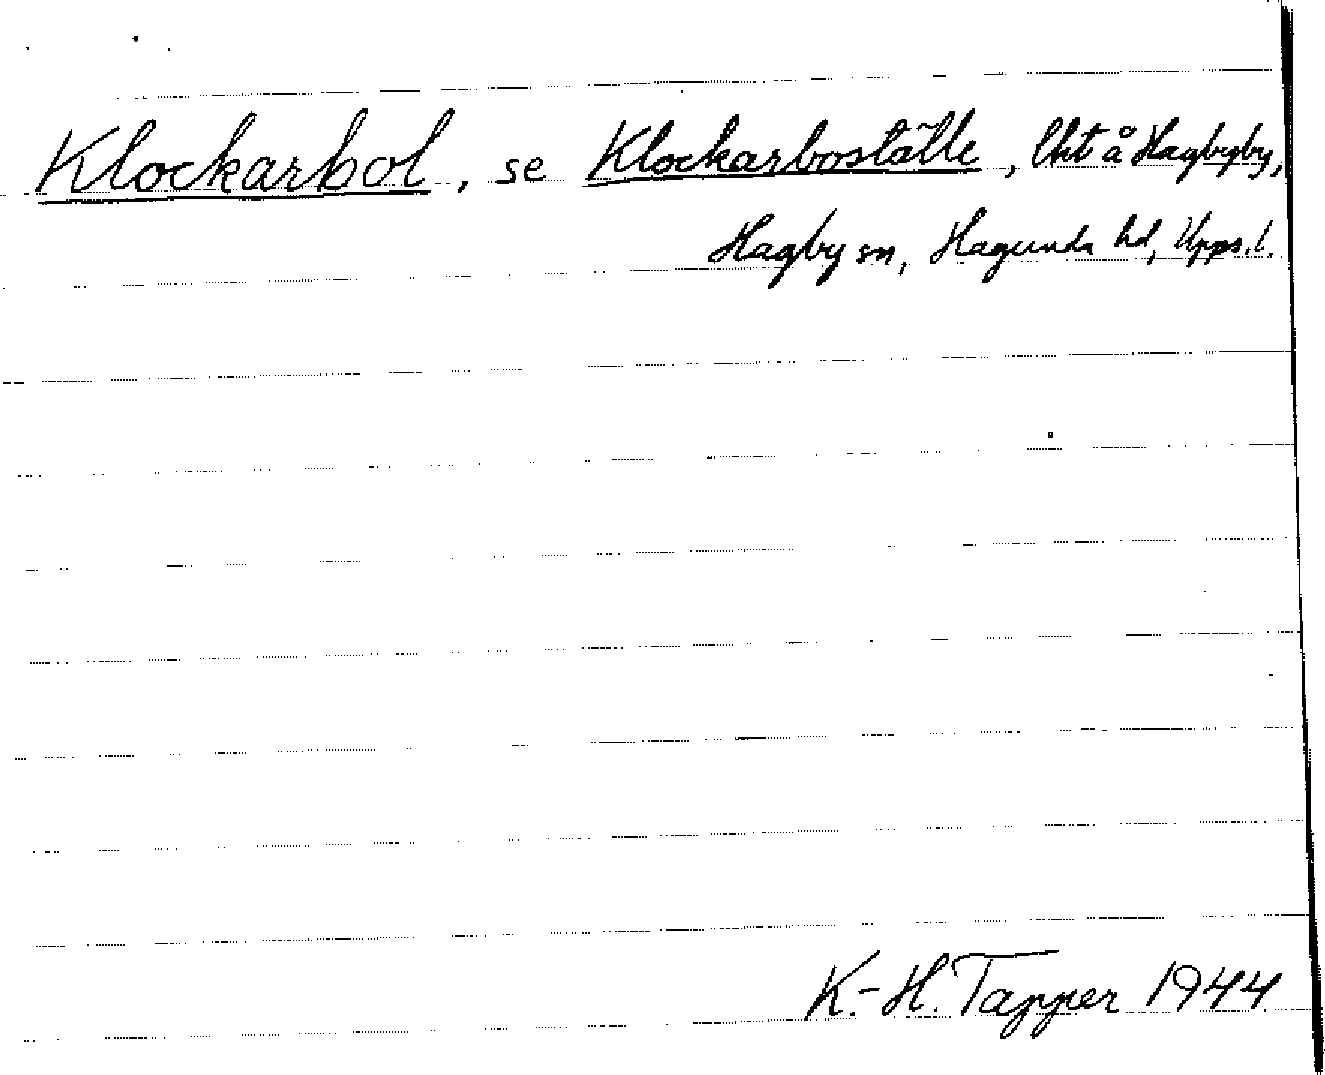 Klockarbol, se Klockarboställe, lht å Hagbyby,
Hagby sn, Hagunda hd, Upps. l.
K.-H. Tapper 1944